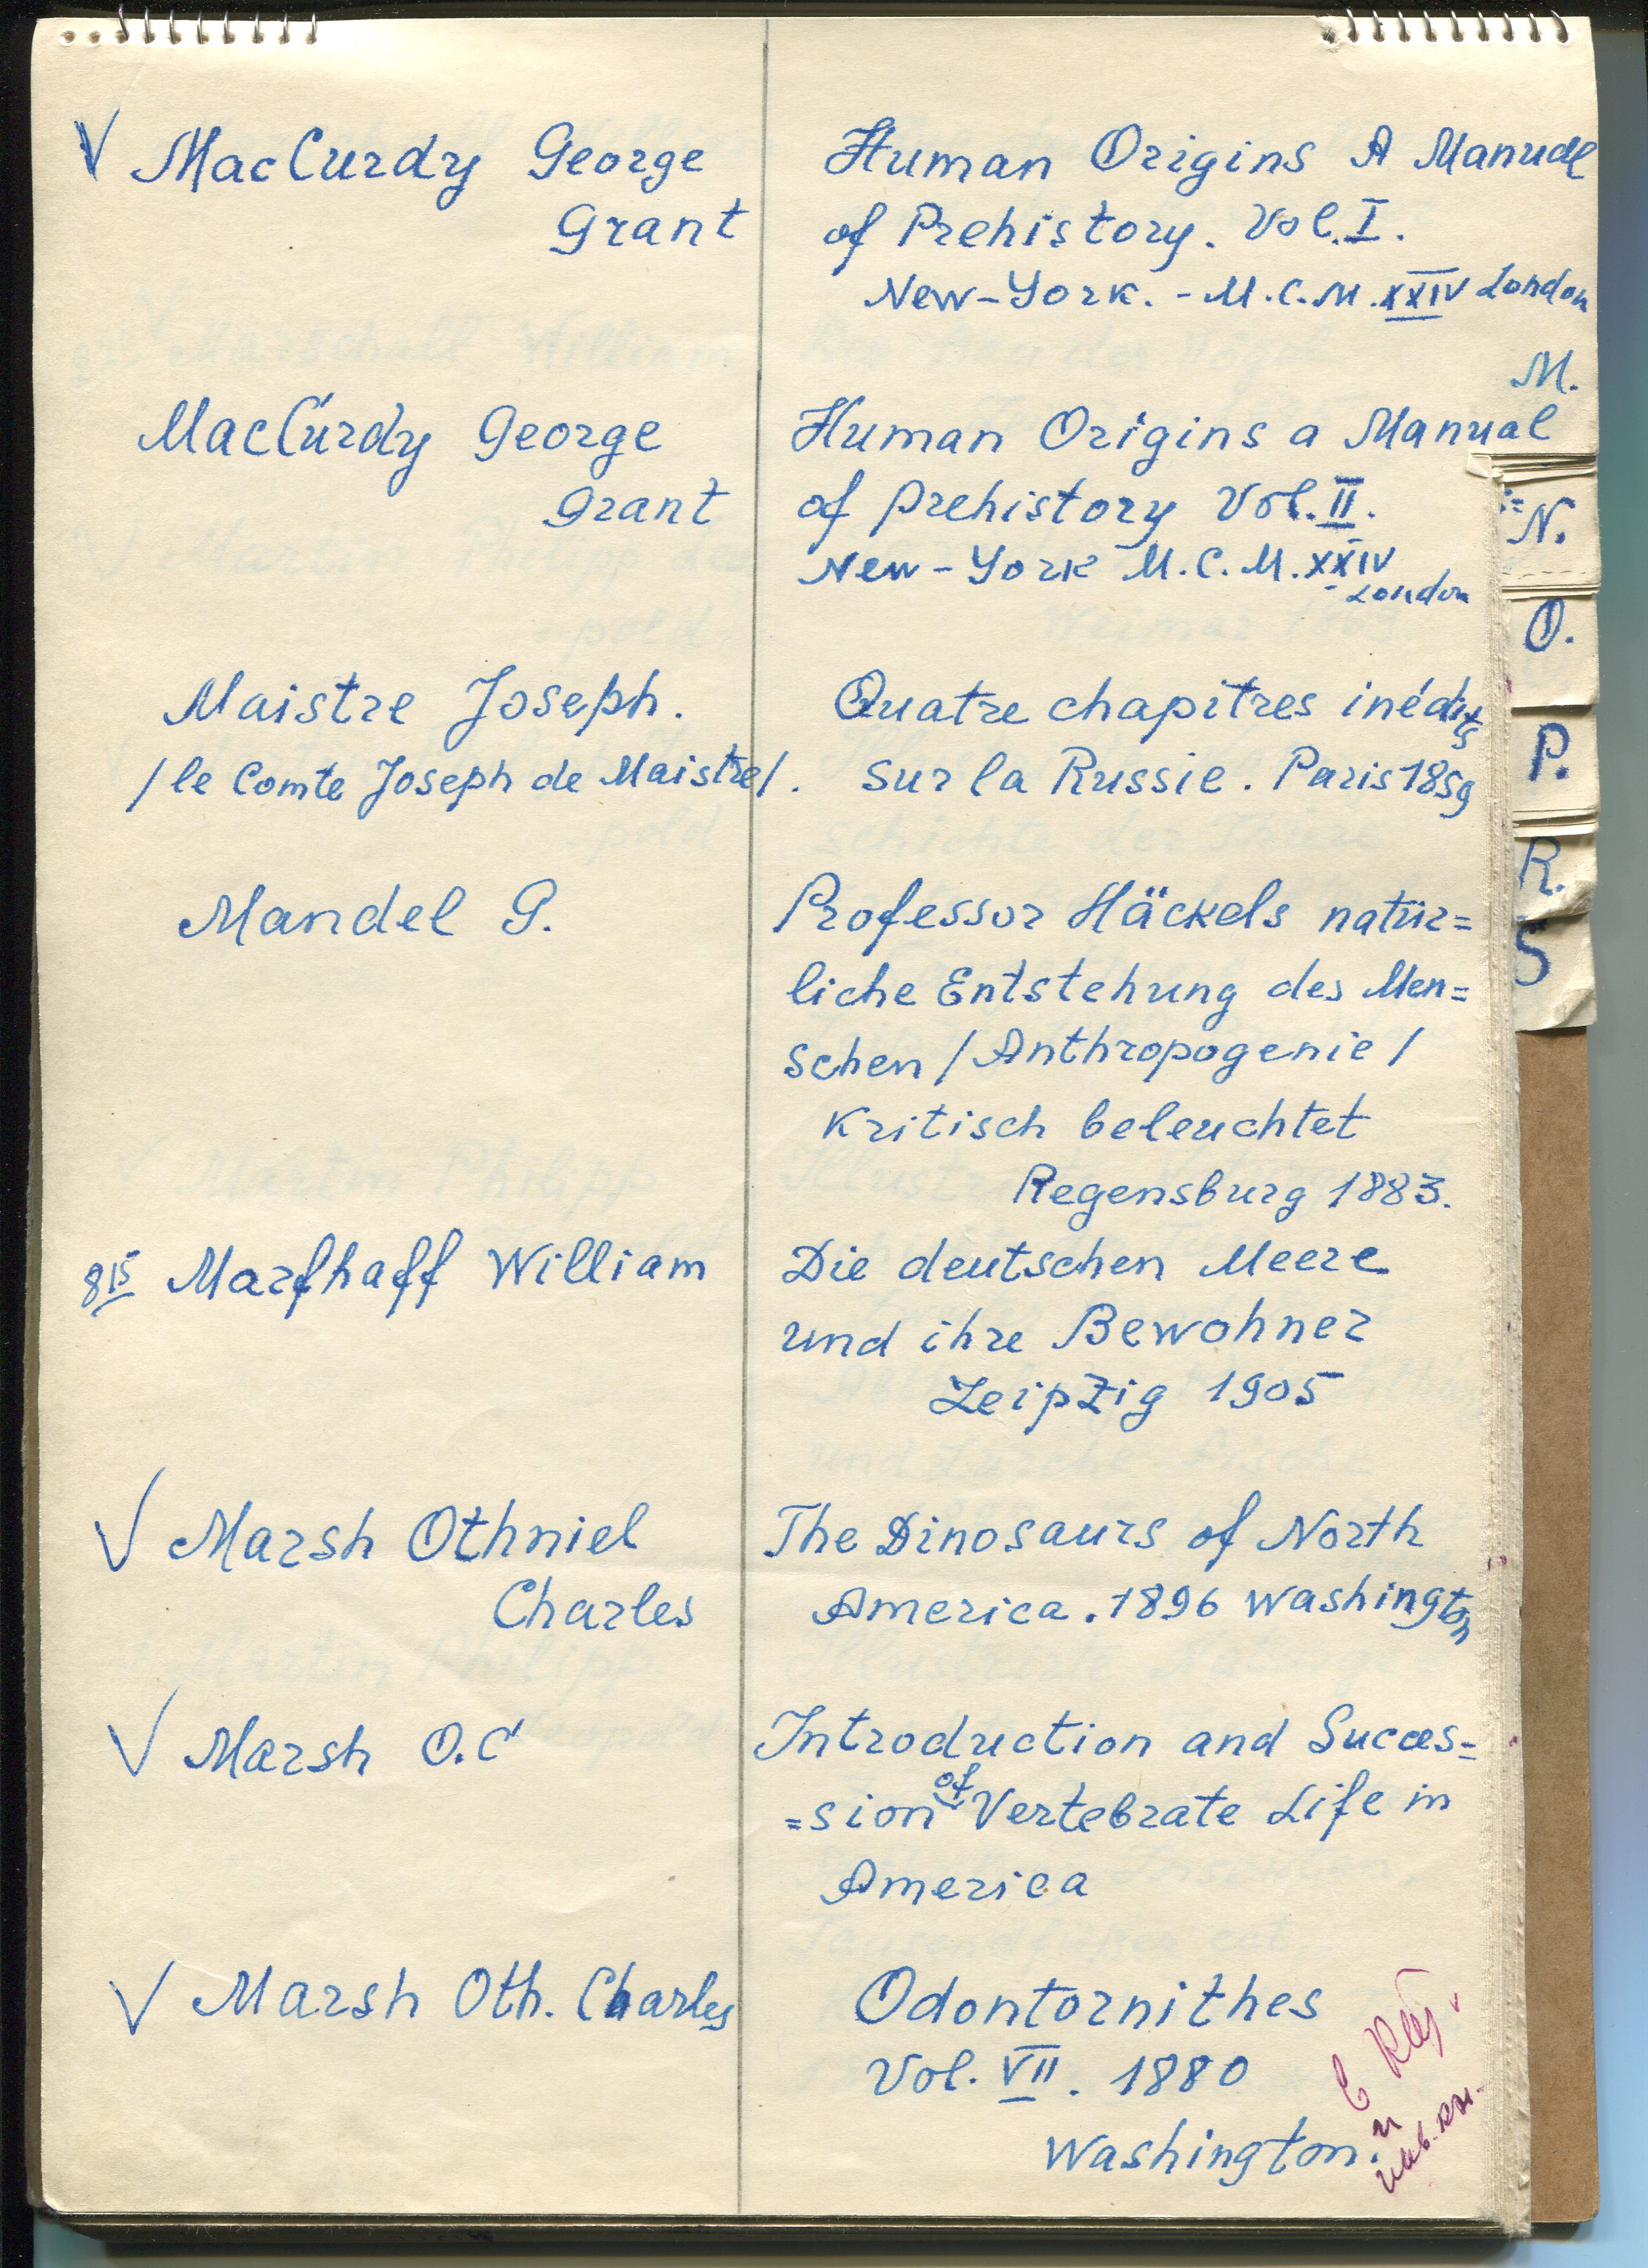 V MacCurdy George
Grant
Human Origins A Manual
of Prehistory. Vol. I.
New-York. - M.C.M.XXIV London
MacCurdy George
Grant
Human Origins a Manual
of prehistory Vol. II.
New-York M.C.M.XXIV
-London
Maistre Joseph.
/le Comte Joseph de Maistre/.
Quatre chapitres inédits
sur la Russie. Paris 1859
Mandel G.
Professor Häckels natür=
liche Entstehung des Men=
schen /Anthropogenie/
kritisch beleuchtet
Regensburg 1883.
815 Marfhaff William
Die deutschen Meere
und ihre Bewohner
Leipzig 1905
V Marsh Othniel
Charles
The Dinosaurs of North
America. 1896 Washington
V Marsh O.C
Introduction and Succes=
=sion of Vertebrate Life in
America
V Marsh Oth. Charles
Odontornithes
Vol. VII. 1880
Washington.
в
и
инв. кн.
M.
N.
O.
P.
R.
S